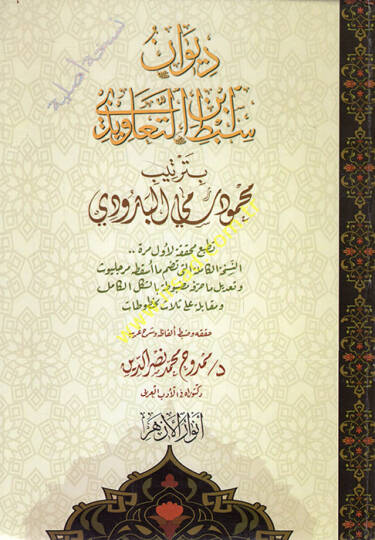 نسخة أصلية
ديوان
سبط ابن التعاويذي
بترتيب
محمود سامي البارودي
تطبع محققة لأول مرة ..
النسخة الكاملة التي تضم ما أسقط مرجليوث
وتعديل ما حرفه مضبوطة بالشكل الكامل
ومقابلة على ثلاث مخطوطات
حققه وضبط ألفاظه وشرح غريبه
د/ ممدوح محمد نصر الدين
دكتوراه في الأدب العربي
أنوار الأزهر